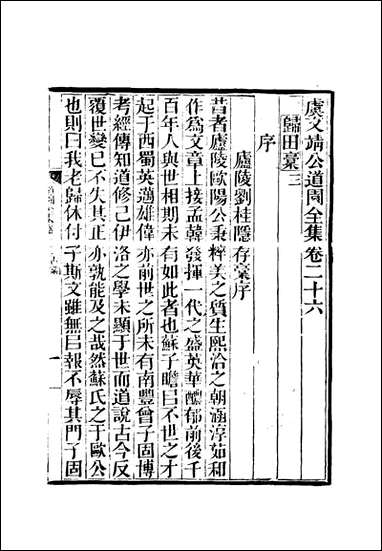 虞文靖公道園全集卷二十六
歸田稾三
序
廬陵劉桂隱存稾序
昔者廬陵歐陽公秉粹美之質生熙洽之朝涵淳茹和
作爲文章上接孟韓發揮一代之盛英華醲郁前後千
百年人與世相期未有如此者也蘇子瞻曰不世之才
起于西蜀英邁雄偉亦前世之所未有南豐曾子固博
考經傳知道修己伊洛之學未顯于世而道說古今反
覆世變已不失其正亦孰能及之哉然蘇氏之于歐公
也則曰我老歸休付子斯文雖無曰報不辱其門子固